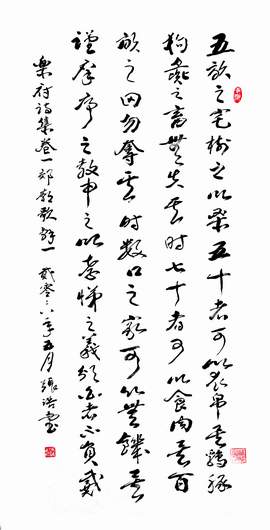 五畝之宅樹之以桑五十者可以衣帛矣鷄豚
狗彘之畜無失其時七十者可以食肉矣百
畝之田勿奪其時數口之家可以無饑矣
謹庠序之教申之以孝悌之義頒白者不負戴
樂府詩集卷一郊廟歌辭一 貳零〻六年五月張